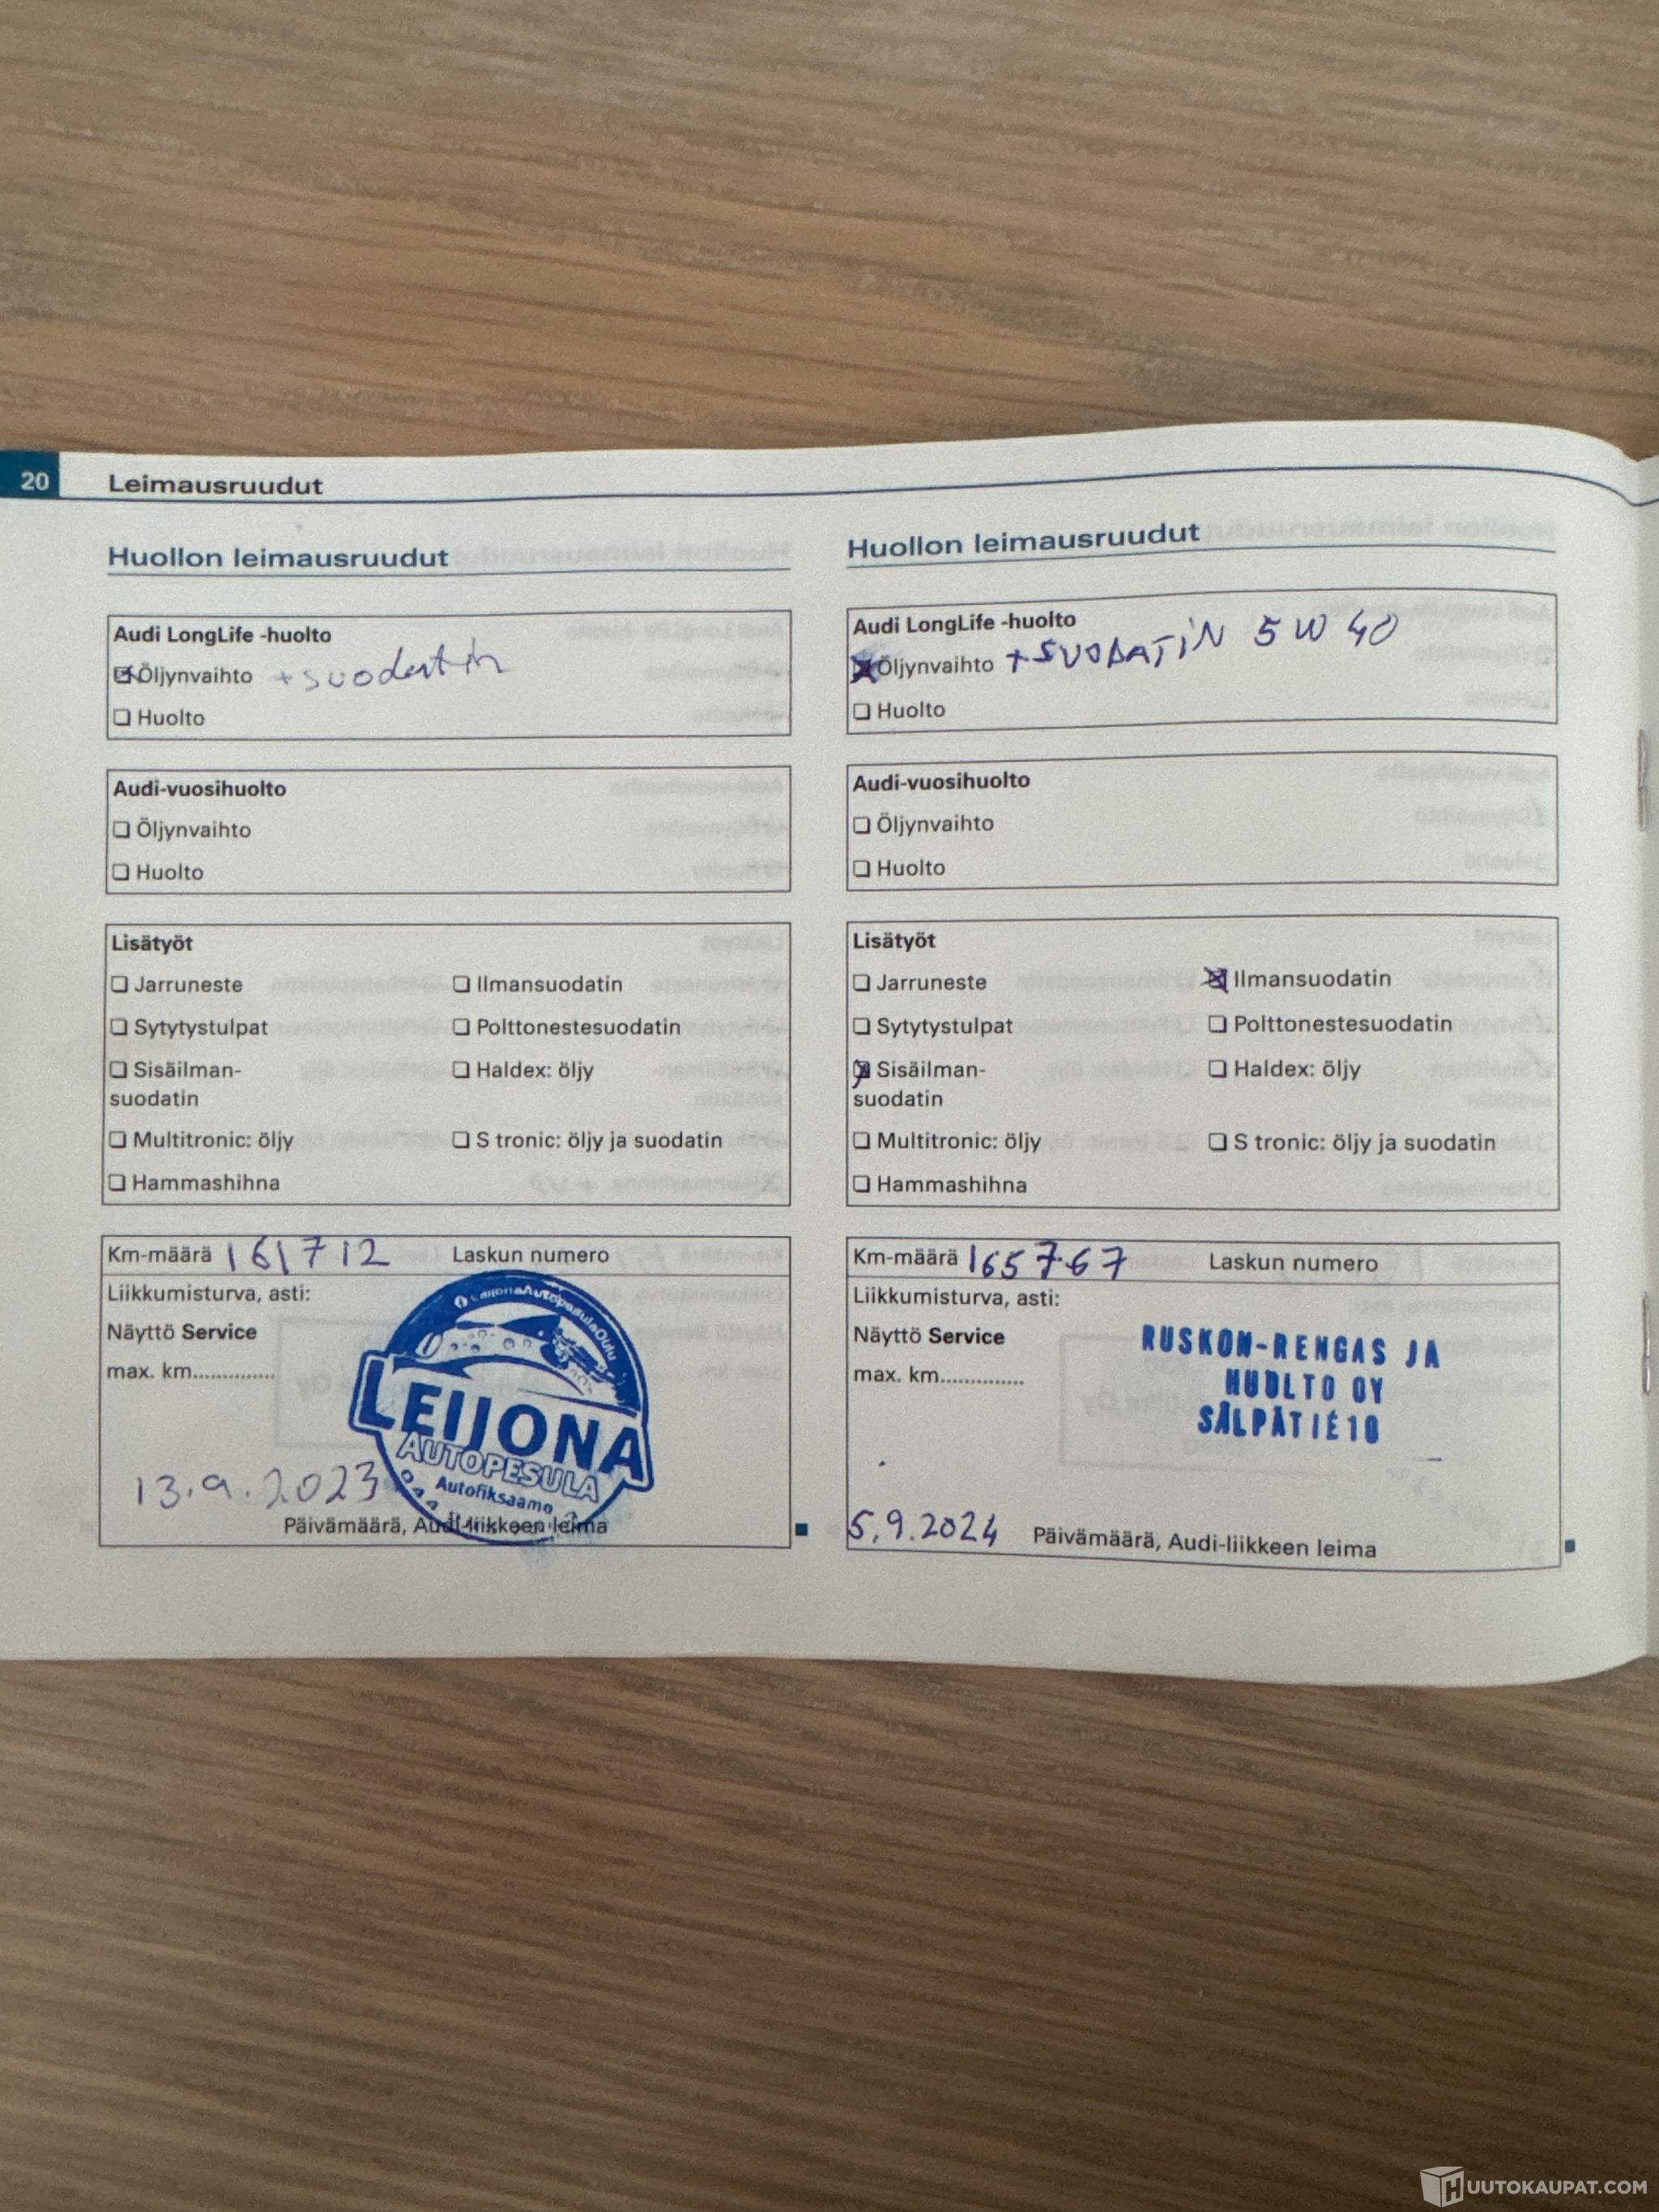 20 Leimausruudut
Huollon leimausruudut
Audi LongLife -huolto
Öljynvaihto + suodatin
Huolto
Audi-vuosihuolto
Öljynvaihto
Huolto
Lisätyöt
Jarruneste Ilmansuodatin
Sytytystulpat Polttonestesuodatin
Sisäilman- Haldex: öljy
suodatin
Multitronic: öljy S tronic: öljy ja suodatin
Hammashihna
Km-määrä 161712 Laskun numero
Liikkumisturva, asti:
Näyttö Service
max. km..............
LeijonaAutopesulaOulu
LEIJONA
AUTOPESULA
Autofiksaamo
13.9.2023
Päivämäärä, Audi-liikkeen leima
Huollon leimausruudut
Audi LongLife -huolto
Öljynvaihto + SUODATIN 5W40
Huolto
Audi-vuosihuolto
Öljynvaihto
Huolto
Lisätyöt
Jarruneste Ilmansuodatin
Sytytystulpat Polttonestesuodatin
Sisäilman- Haldex: öljy
suodatin
Multitronic: öljy S tronic: öljy ja suodatin
Hammashihna
Km-määrä 165767 Laskun numero
Liikkumisturva, asti:
Näyttö Service
max. km..............
RUSKON-RENGAS JA
HUOLTO OY
SÄLPÄTIE10
5.9.2024 Päivämäärä, Audi-liikkeen leima
HUUTOKAUPAT.COM